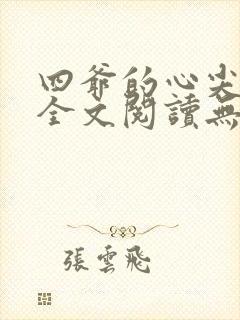 四爺的心尖
全文閱讀無
張雲飛